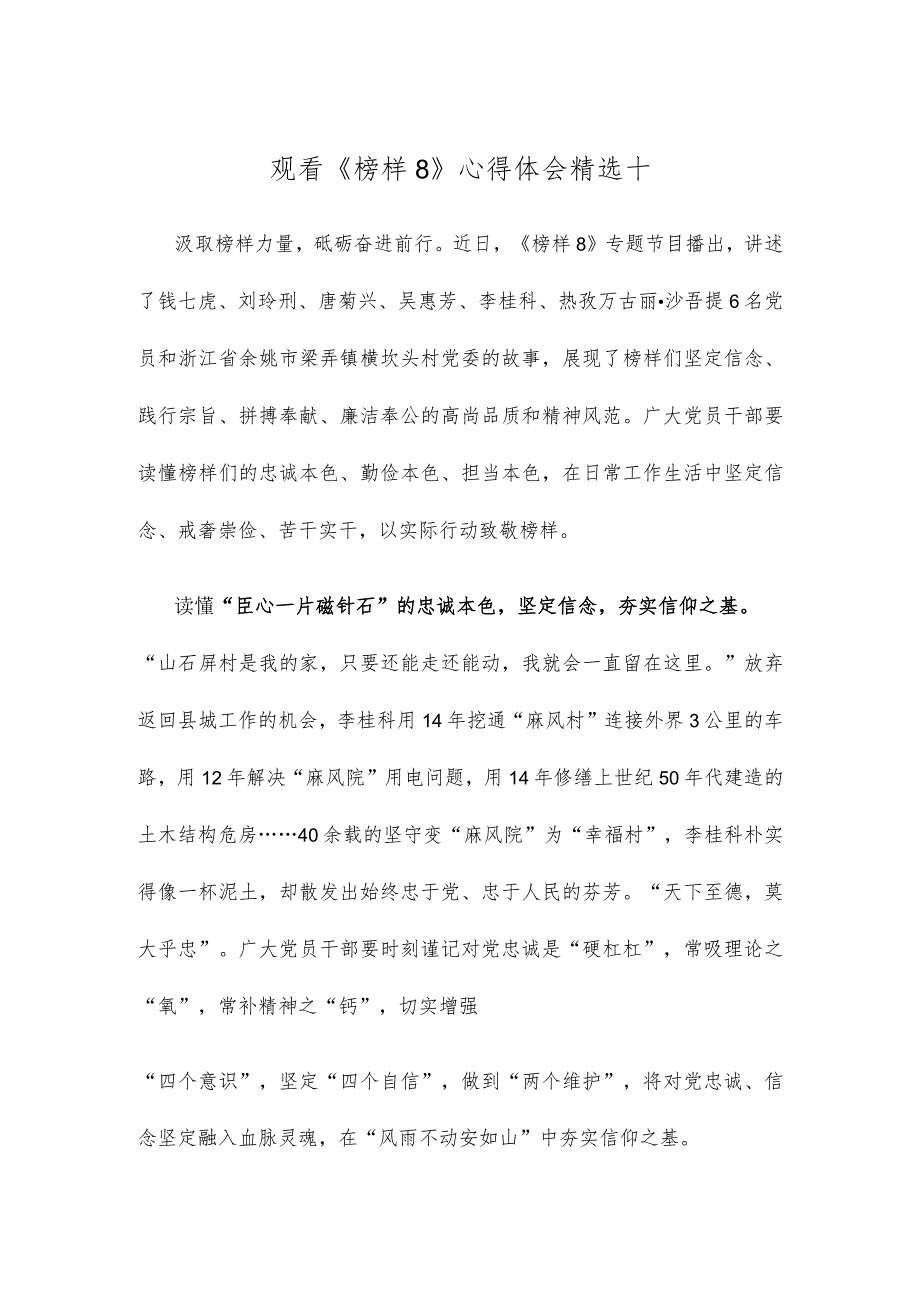 观看《榜样8》心得体会精选十
汲取榜样力量，砥砺奋进前行。近日，《榜样8》专题节目播出，讲述
了钱七虎、刘玲刑、唐菊兴、吴惠芳、李桂科、热孜万古丽•沙吾提6名党
员和浙江省余姚市梁弄镇横坎头村党委的故事，展现了榜样们坚定信念、
践行宗旨、拼搏奉献、廉洁奉公的高尚品质和精神风范。广大党员干部要
读懂榜样们的忠诚本色、勤俭本色、担当本色，在日常工作生活中坚定信
念、戒奢崇俭、苦干实干，以实际行动致敬榜样。
读懂“臣心一片磁针石”的忠诚本色，坚定信念，夯实信仰之基。
“山石屏村是我的家，只要还能走还能动，我就会一直留在这里。”放弃
返回县城工作的机会，李桂科用14年挖通“麻风村”连接外界3公里的车
路，用12年解决“麻风院”用电问题，用14年修缮上世纪50年代建造的
土木结构危房……40余载的坚守变“麻风院”为“幸福村”，李桂科朴实
得像一杯泥土，却散发出始终忠于党、忠于人民的芬芳。“天下至德，莫
大乎忠”。广大党员干部要时刻谨记对党忠诚是“硬杠杠”，常吸理论之
“氧”，常补精神之“钙”，切实增强
“四个意识”，坚定“四个自信”，做到“两个维护”，将对党忠诚、信
念坚定融入血脉灵魂，在“风雨不动安如山”中夯实信仰之基。